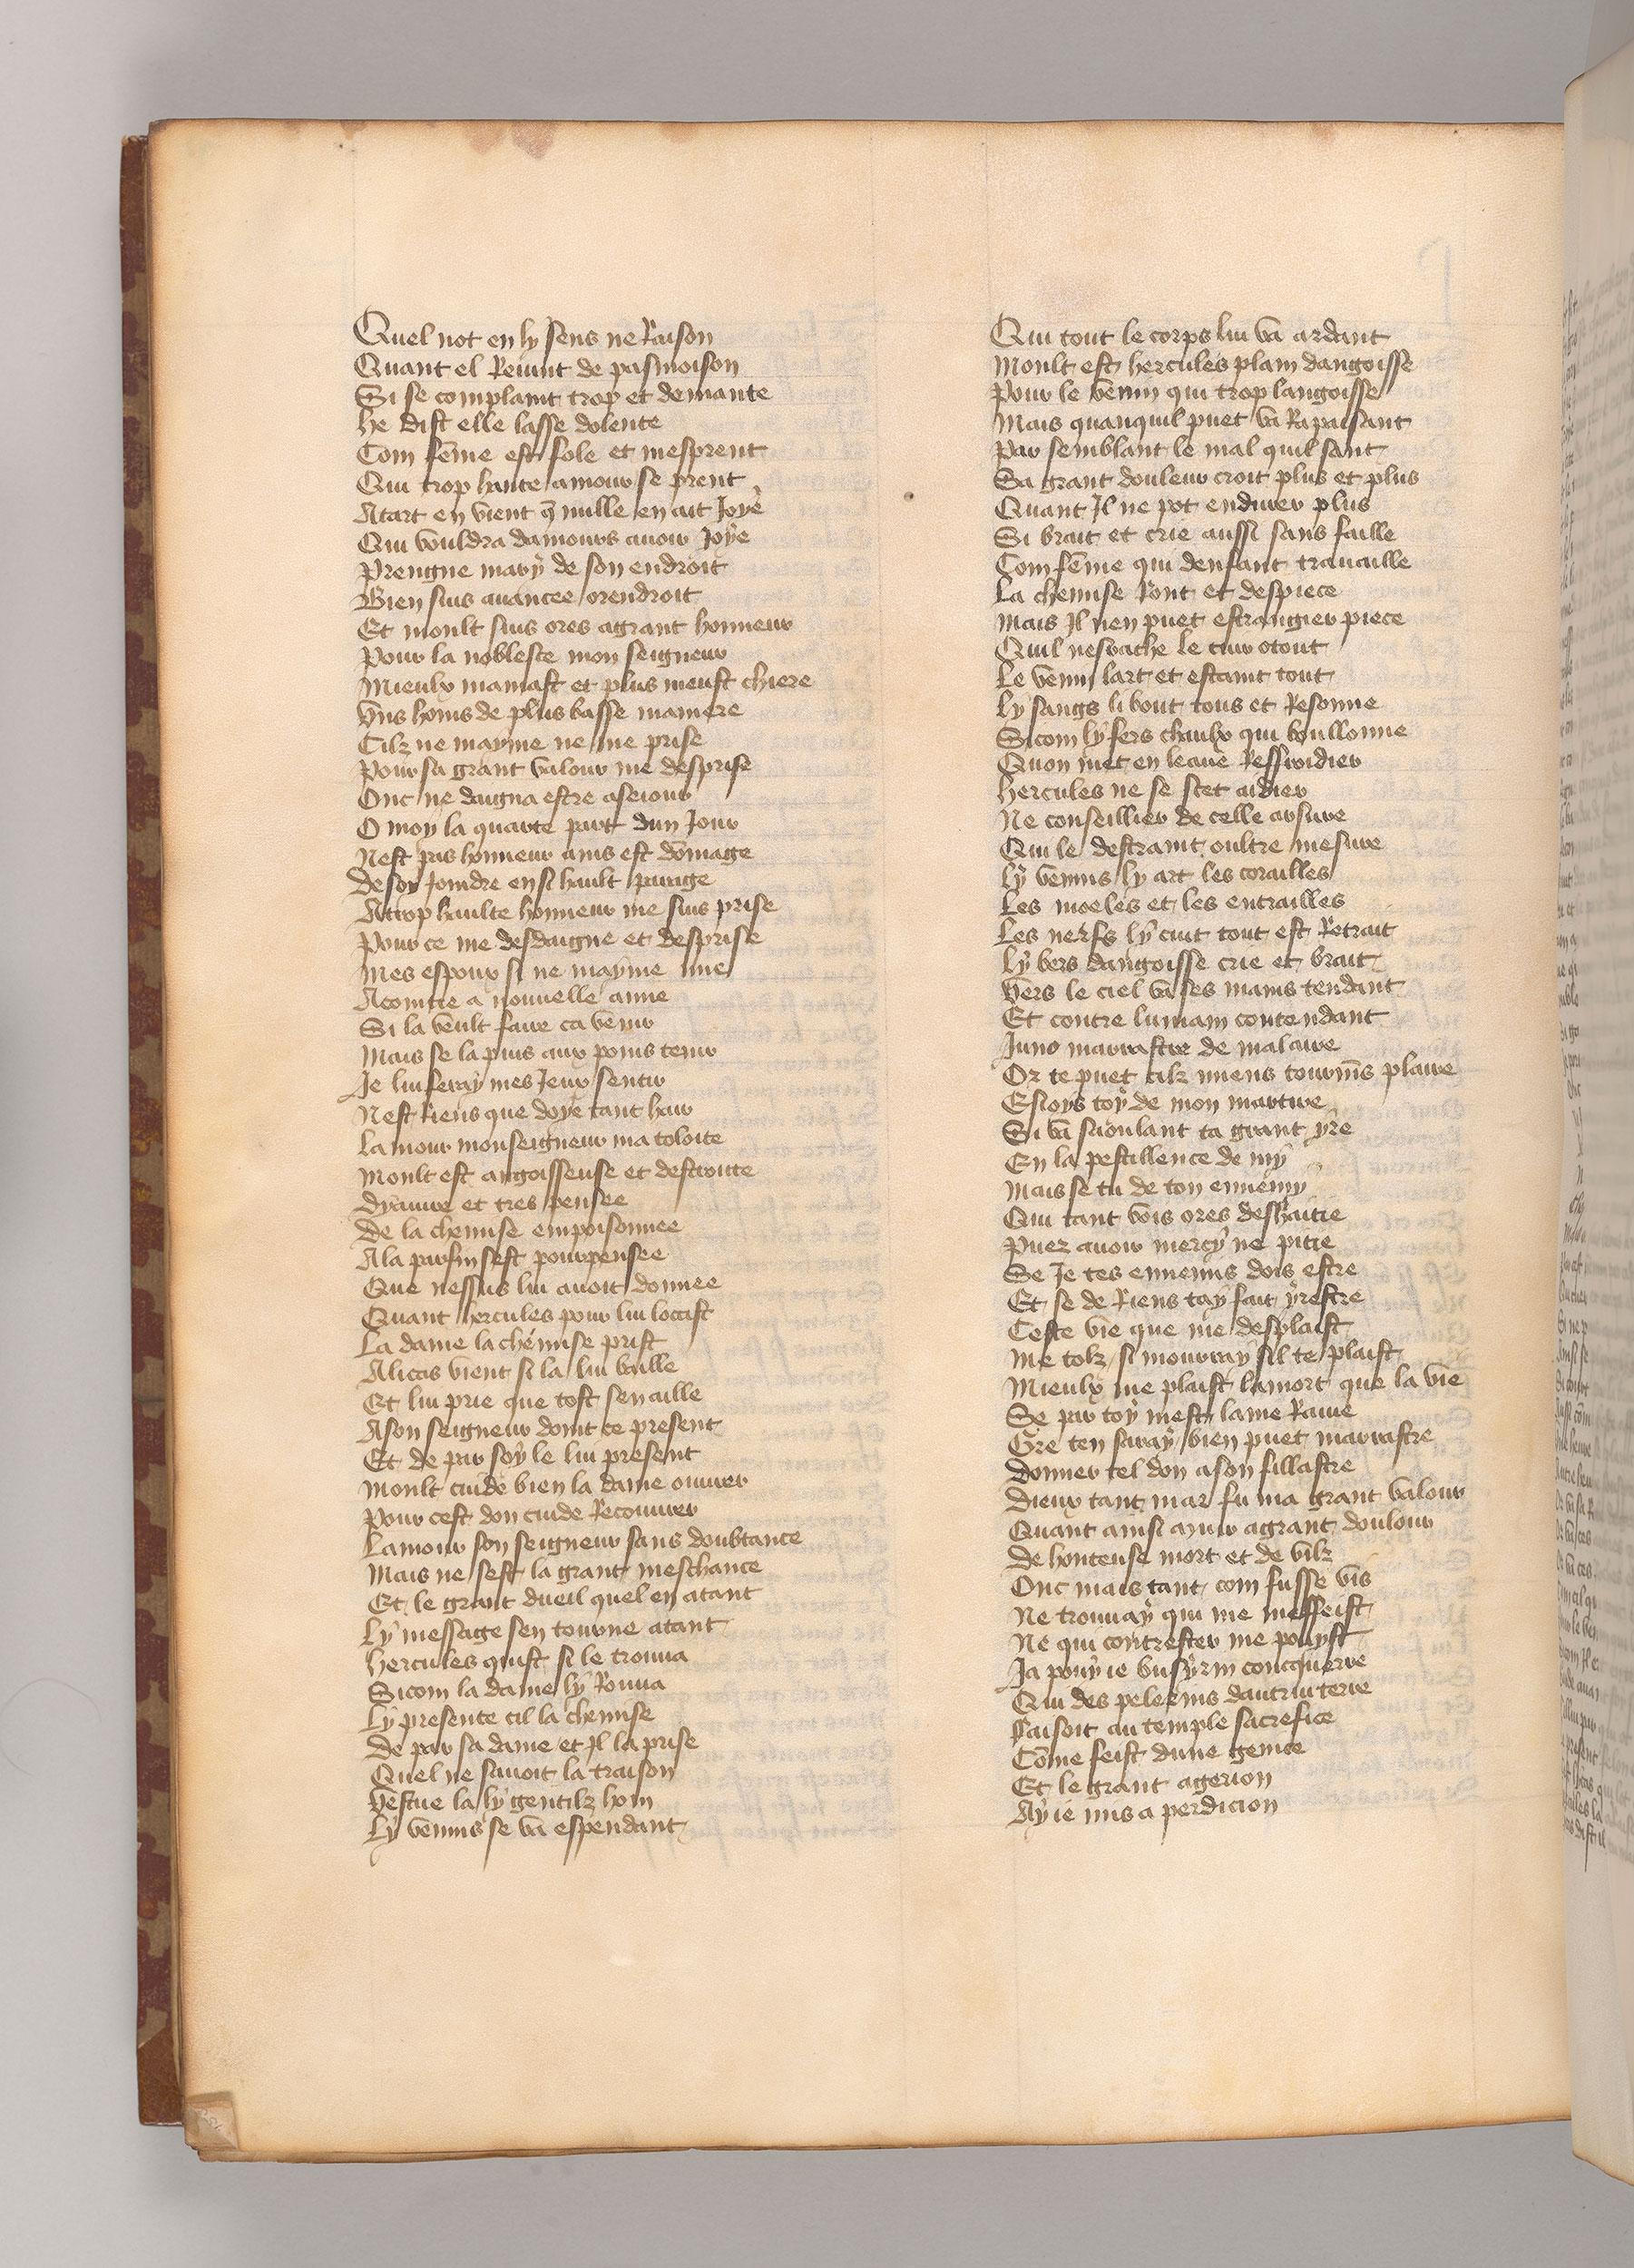 Quel not en ly sens ne Raison
Quant el Revint de pasmoison
Si se complaint trop et demante
He dist elle lasse dolente
Com fe͂me est fole et mesprent
Qui trop haute amour se prent
Atart en vient q̃ nulle en ait Joye
Qui vouldra damours avoir Joye
Prengne mary de son endroit
Bien suis avancee orendroit
Et moult suis ores agrant honneur
Pour la noblesce mon seigneur
Mieulx mamast et plus meust chiere
Vns homs de plus basse maniere
Cilz ne mayme ne me prise
Pour sa grant valour me desprise
Onc ne daigna estre asejour
O moy la quarte part dun Jour
Nest pas honneur ains est do͂mage
De soy Joindre en si hault parage
Atrop haulte honneur me suis prise
Pour ce me desdaigne et desprise
Mes espoux si ne mayme mie
Acointie a nouvelle amie
Si la veult faire ca venir
Mais se la puis aux poins tenir
Je lui feray mes Jeux sentir
Nest Riens que doye tant hair
Lamour monseigneur ma toloite
Moult est angoisseuse et destroite
Dyanire et tres pensee
De la chemise empoisonnee
Ala parfin sest pourpensee
Que nessus lui avoit donnee
Quant hercules pour lui loccist
La dame la chemise prist
Alicas vient si la lui baille
Et lui prie que tost sen aille
Ason seigneur doint ce present
Et de par soy le lui present
Moult cuide bien la dame ouvrer
Pour cest don cuide Recouvrer
Lamour son seigneur sans doubtance
Mais ne scet la grant meschance
Et le grant dueil quel en atant
Ly message sen tourne atant
Hercules quist si le trouva
Sicom la dame ly Rouva
Ly presente cil la chemise
De par sa dame et Jl la prise
Quel ne savoit la traison
Vestue la ly gentilz hom
Ly venins se va espendant
Qui tout le corps lui va ardant
Moult est hercules plain dangoisse
Pour le venin qui trop langoisse
Mais quanquil puet va Rapaisant
Par semblant le mal quil sant
Sa grant douleur croit plus et plus
Quant Jl ne pot endurer plus
Si brait et crie aussi sans faille
Com fe͂me qui denfant travaille
La chemise Ront et despiece
Mais Jl nen puet estrangier piece
Quil nesrache le cuir otout
Le venin lart et estaint tout
Ly sangs li bout tous et Resonne
Sicom ly fers chaulx qui boullonne
Quon met en leaue Reffroidier
Hercules ne se scet aidier
Ne conseillier de celle arsure
Qui le destraint oultre mesure
Ly venins ly art les corailles
Les moeles et les entrailles
Les nerfs ly cuit tout est Retrait
Ly bers dangoisse crie et brait
Vers le ciel va ses mains tendant
Et contre lumain contendant
Juno marrastre de mal aire
Or te puet cilz miens tourme͂s plaire
Esioys toy de mon martire
Si va saoulant ta grant yre
En la pestillence de my
Mais se tu de ton ennemy
Qui tant vois ores deshaitie
Puez avoir mercy ne pitie
Se Je tes ennemis dois estre
Et se de Riens tay fait yrestre
Ceste vie que me desplaist
Me tolz si mourray sil te plaist
Mieulx me plaist lamort que la vie
Se par toy mest lame Ravie
Gre ten saray bien puet marrastre
Donner tel don ason fillastre
Dieux tant mar fu ma grant valour
Quant ainsi muir agrant doulour
De honteuse mort et de vilz
Onc mais tant com fusse vis
Ne trouvay qui me meffeist
Ne qui contrester me pouyst
Ja pouy ie busyrin concquerre
Qui des pelerins dautrui terre
Faisoit au temple sacrefice
Co͂me feist dune genice
Et le grant agerion
Ay ie mis a perdicion